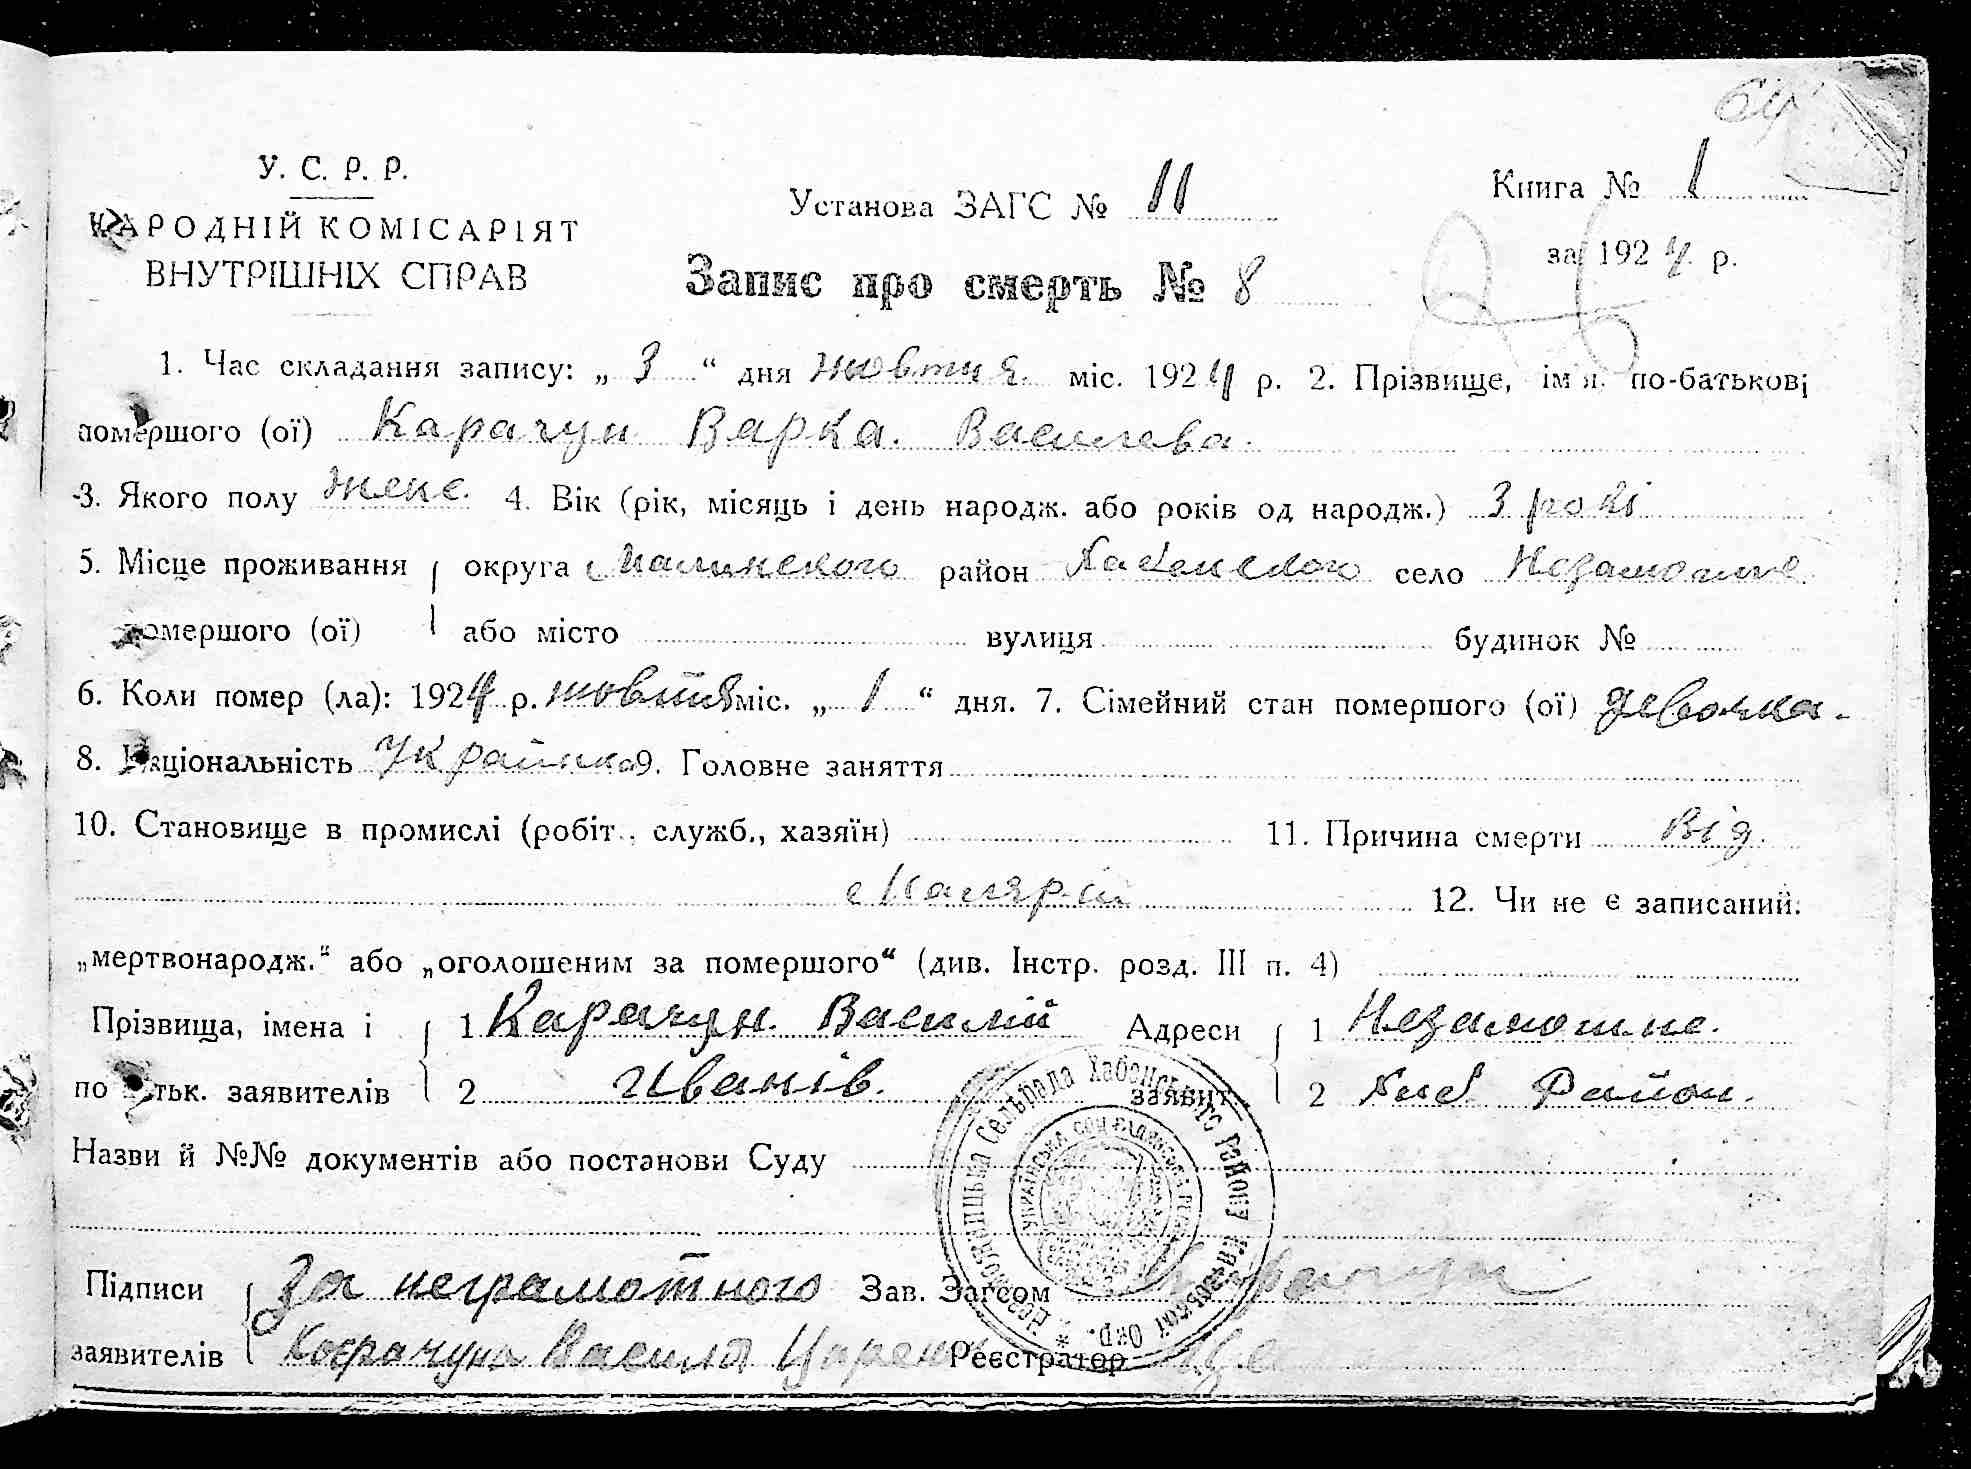 64
У. С. Р. Р.
НАРОДНІЙ КОМІСАРІЯТ
ВНУТРІШНІХ СПРАВ
Установа ЗАГС № 11
Книга № 1
за 1924 р.
Запис про смерть № 8
1. Час складання запису: „ 3 “ дня жовтня міс. 1924 р. 2. Прізвище, ім'я, по-батькові
помершого (ої) Карачун Варка Василева
3. Якого полу женс. 4. Вік (рік, місяць і день народж. або років од народж.) 3 рокі
5. Місце проживання округа Малинского район Хабенского село Незамошне
помершого (ої) або місто вулиця будинок №
6. Коли помер (ла): 1924 р. жовтня міс. „ 1 “ дня. 7. Сімейний стан помершого (ої) девочка
8. Національність Українка 9. Головне заняття
10. Становище в промислі (робіт., служб., хазяїн) 11. Причина смерти від
Малярії 12. Чи не є записаний:
„мертвонародж.“ або „оголошеним за помершого“ (див. Інстр. розд. III п. 4)
Прізвища, імена і 1 Карачун Василій Адреси 1 Незамошне
по батьк. заявителів 2 Иванів. заявит. 2 Хаб Район.
Назви й №№ документів або постанови Суду
Підписи За неграмотного Зав. Загсом
заявителів Карачуна Василя Реєстратор
сельрада Хабенського району Окр.
УКРАЇНСЬКА СОЦ